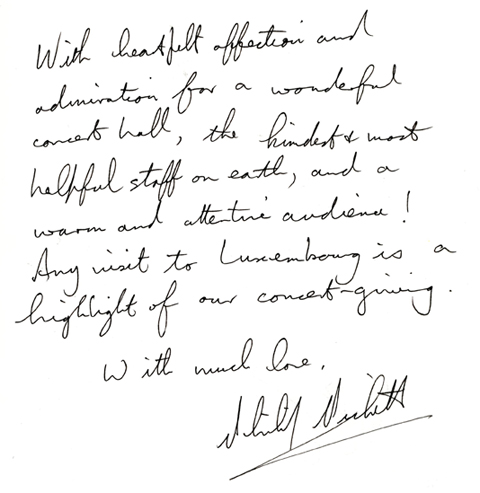 With heartfelt affection and
admiration for a wonderful
concert hall, the kindest & most
helpful staff on earth, and a
warm and attentive audience!
Any visit to Luxembourg is a
highlight of our concert-giving.
With much love,